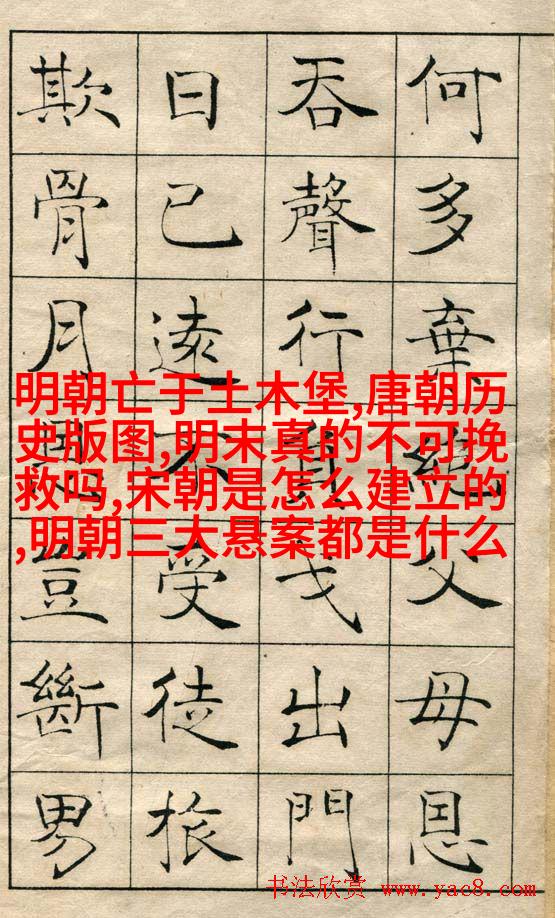 何多棄絕父母恩
吞聲行負戈出門
日已遠不受徒旅
欺骨月豈斷男
明朝亡于土木堡,唐朝历
史版图,明末真的不可挽
救吗,宋朝是怎么建立的
,明朝三大悬案都是什么
书法欣赏 www.yac8.com